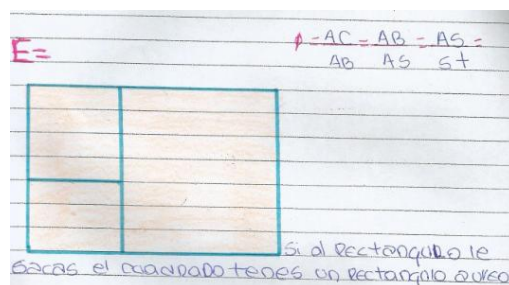 E=
φ = AC = AB = AS =
AB AS St
Si al Rectangulo le
sacas el cuadrado tenes un Rectangulo aureo